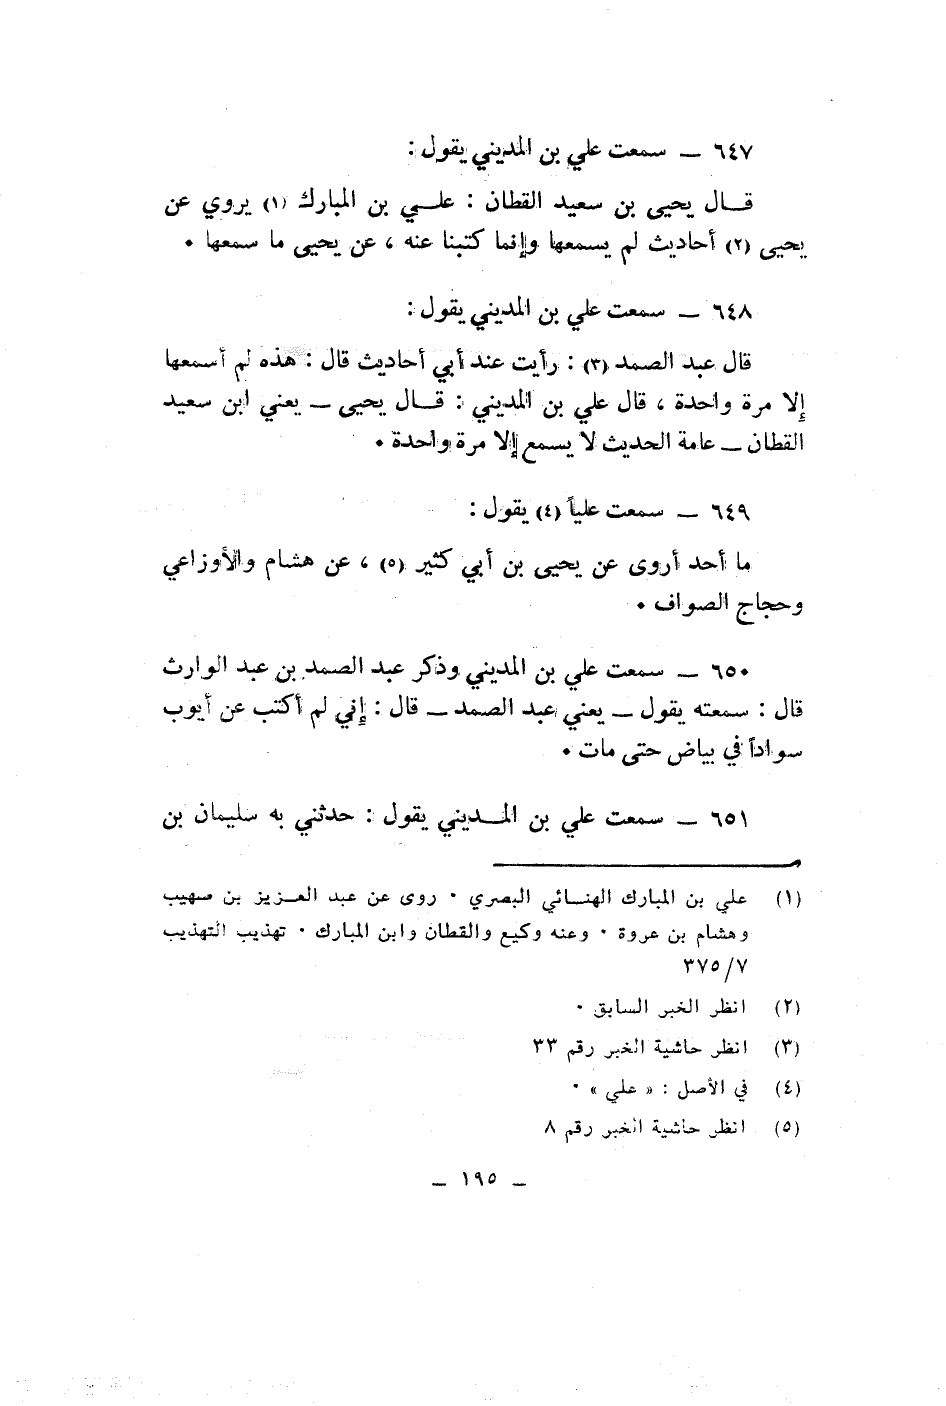 ٦٤٧ ــ سمعت علي بن المديني يقول :
قـــال يحيى بن سعيد القطان : علـــي بن المبارك (١) يروي عن
يحيى (٢) أحاديث لم يسمعها وإنما كتبنا عنه ، عن يحيى ما سمعها ٠
٦٤٨ ــ سمعت علي بن المديني يقول :
قال عبد الصمد (٣) : رأيت عند أبي أحاديث قال : هذه لم أسمعها
إلا مرة واحدة ، قال علي بن المديني : قـــال يحيى ــ يعني ابن سعيد
القطان ــ عامة الحديث لا يسمع إلا مرة واحدة ٠
٦٤٩ ــ سمعت علياً (٤) يقول :
ما أحد أروى عن يحيى بن أبي كثير (٥) ، عن هشام والأوزاعي
وحجاج الصواف ٠
٦٥٠ ــ سمعت علي بن المديني وذكر عبد الصمد بن عبد الوارث
قال : سمعته يقول ــ يعني عبد الصمد ــ قال : إني لم أكتب عن أيوب
سواداً في بياض حتى مات ٠
٦٥١ ــ سمعت علي بن المـــديني يقول : حدثني به سليمان بن
(١) علي بن المبارك الهنـــائي البصري ٠ روى عن عبد العـــزيز بن صهيب
وهشام بن عروة ٠ وعنه وكيع والقطان وابن المبارك ٠ تهذيب التهذيب
٣٧٥/٧
(٢) انظر الخبر السابق ٠
(٣) انظر حاشية الخبر رقم ٣٣
(٤) في الأصل : « علي » ٠
(٥) انظر حاشية الخبر رقم ٨
ــ ١٩٥ ــ